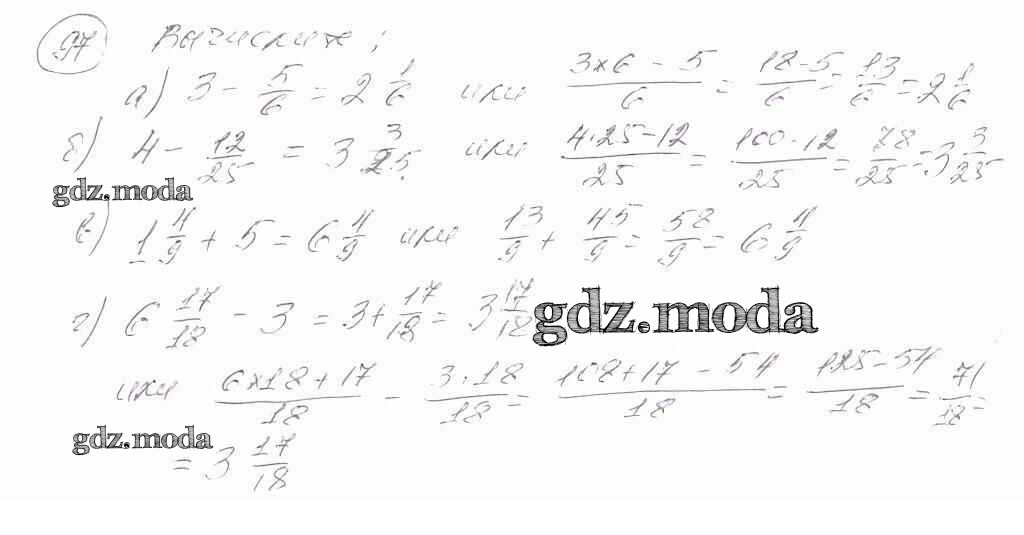 97 Вычислите:
а) 3 - 5/6 = 2 1/6 или (3×6 - 5)/6 = (18-5)/6 = 13/6 = 2 1/6
б) 4 - 12/25 = 3 3/25. или (4·25-12)/25 = (100-12)/25 = 78/25 = 3 3/25
gdz.moda
в) 1 4/9 + 5 = 6 4/9 или 13/9 + 45/9 = 58/9 = 6 4/9
г) 6 17/18 - 3 = 3 + 17/18 = 3 17/18
gdz.moda
или (6×18+17)/18 - (3·18)/18 = (108+17-54)/18 = (125-54)/18 = 71/18 =
gdz.moda
= 3 17/18